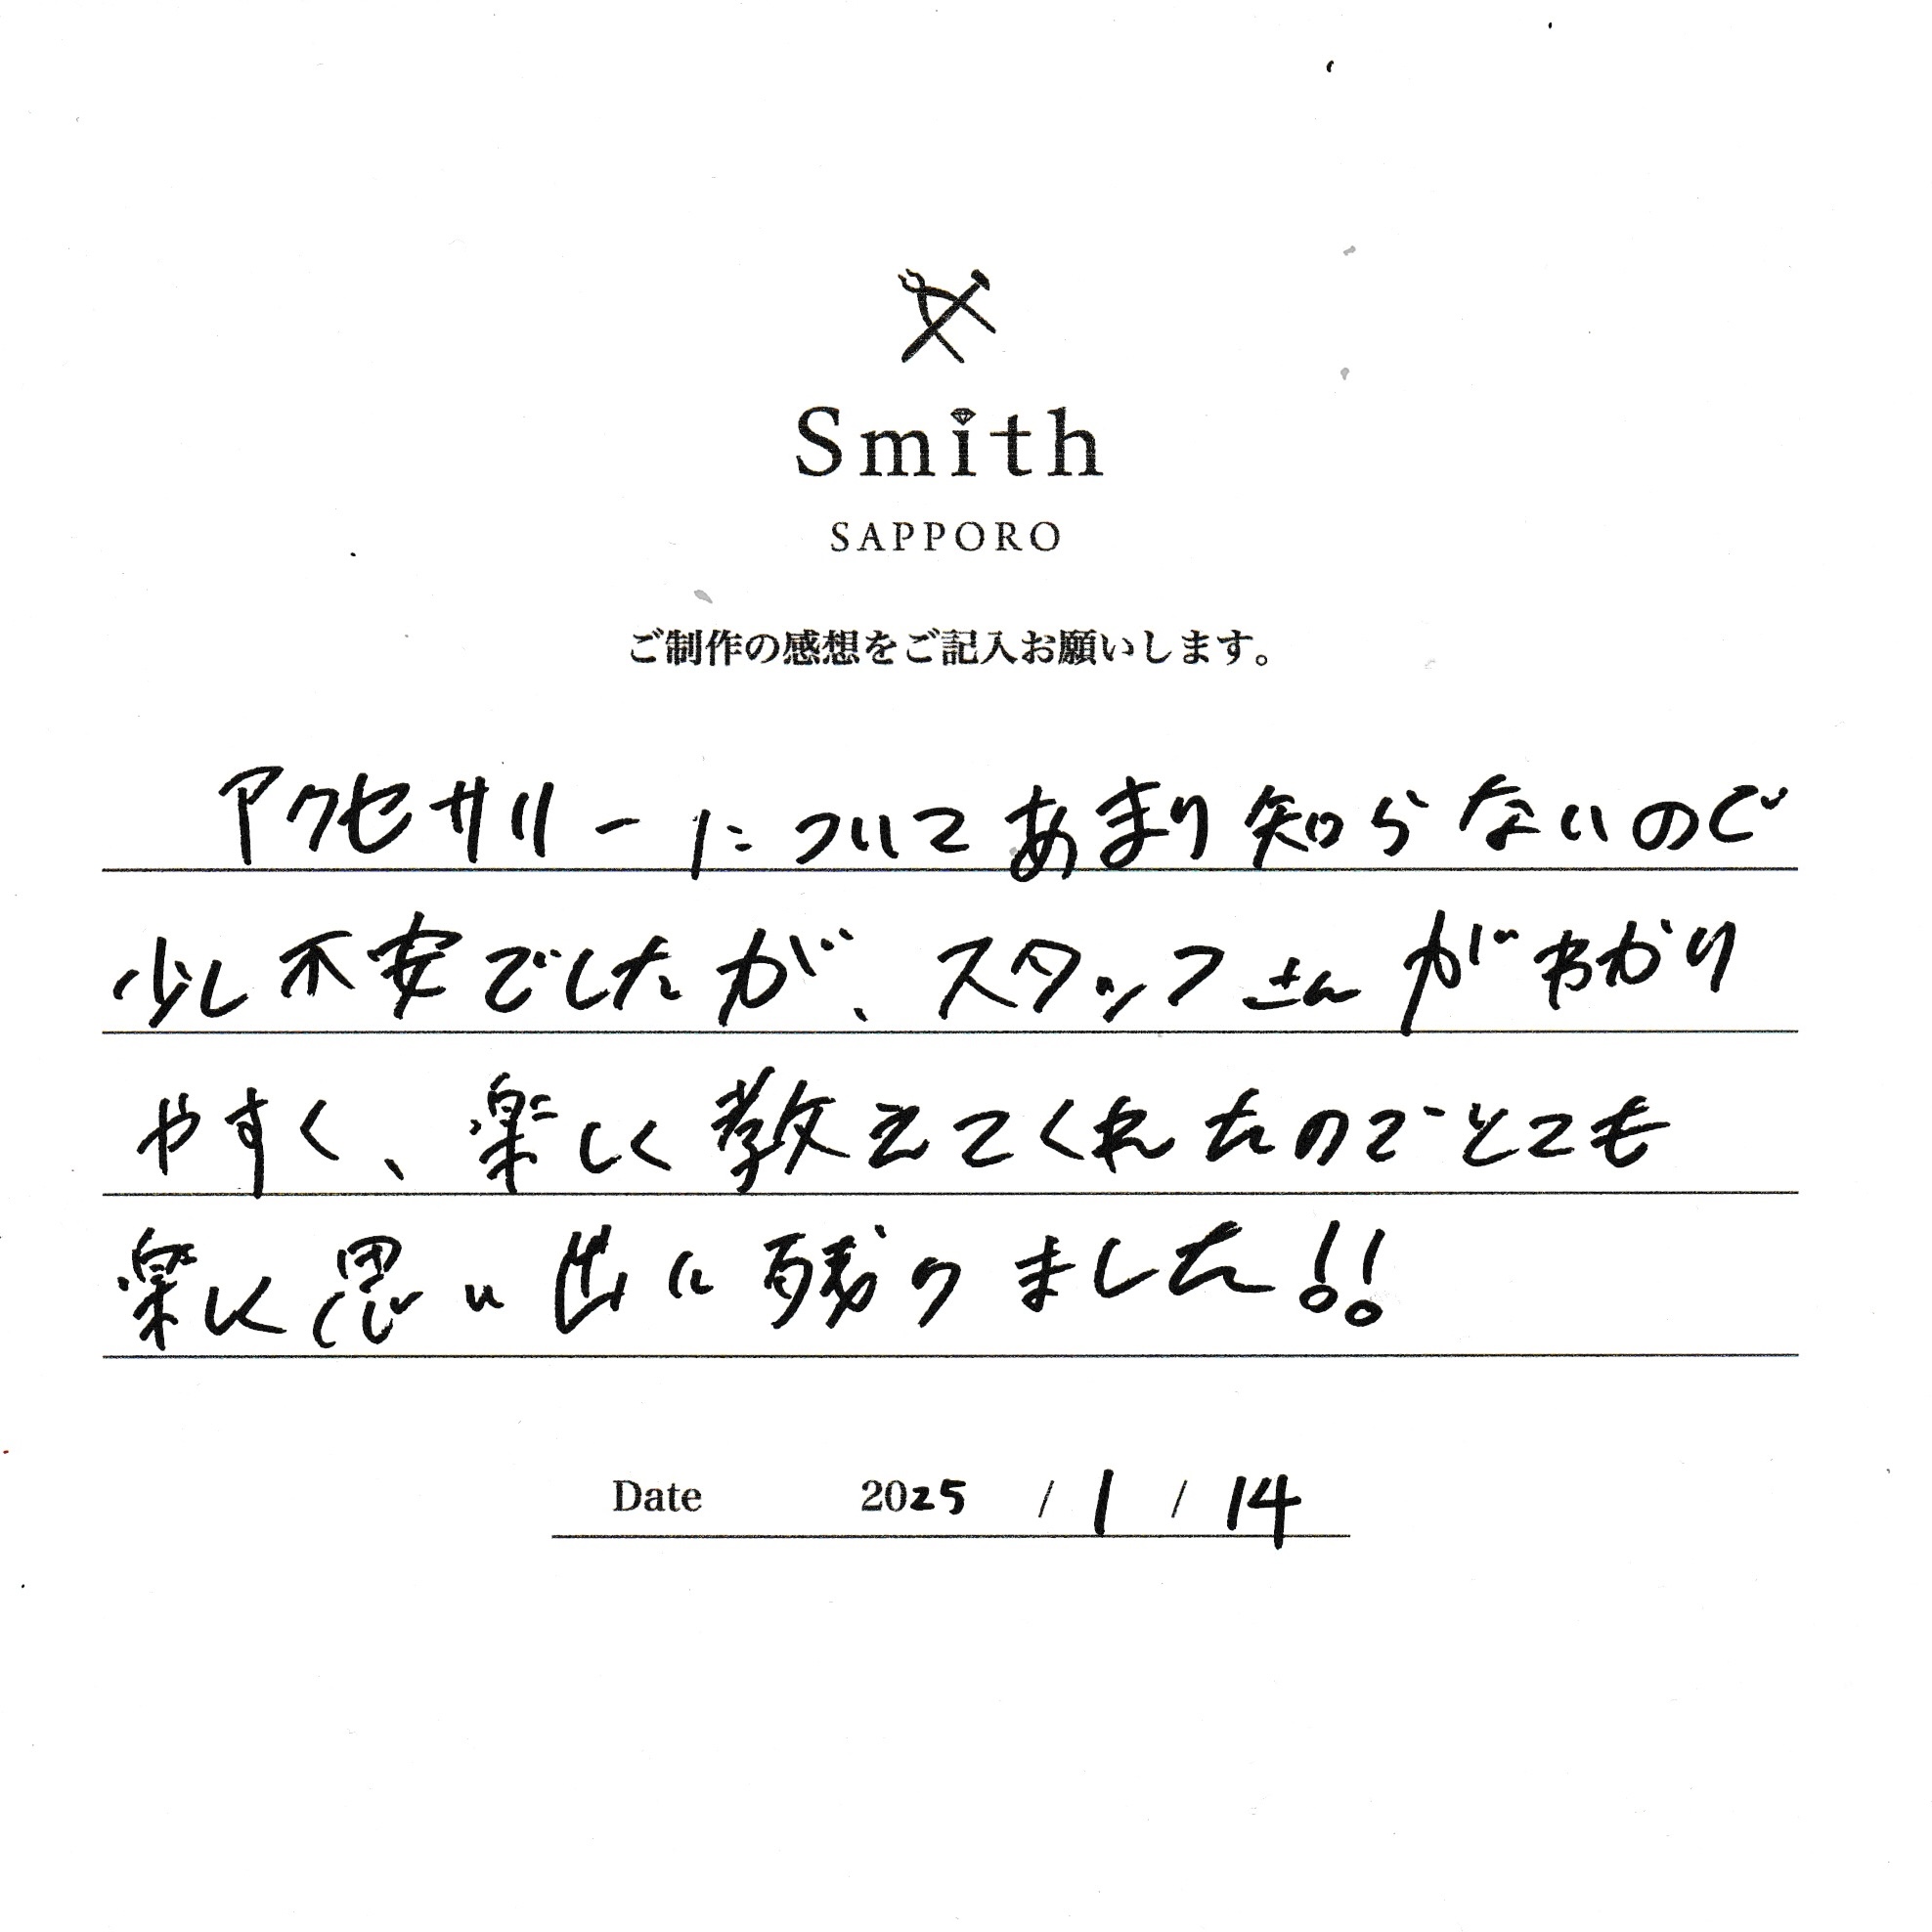 Smith
SAPPORO
ご制作の感想をご記入お願いします。
アクセサリーについてあまり知らないので
少し不安でしたが、スタッフさんがわかり
やすく、楽しく教えてくれたのでとても
楽しく思い出に残りました!!
Date 2025 / 1 / 14